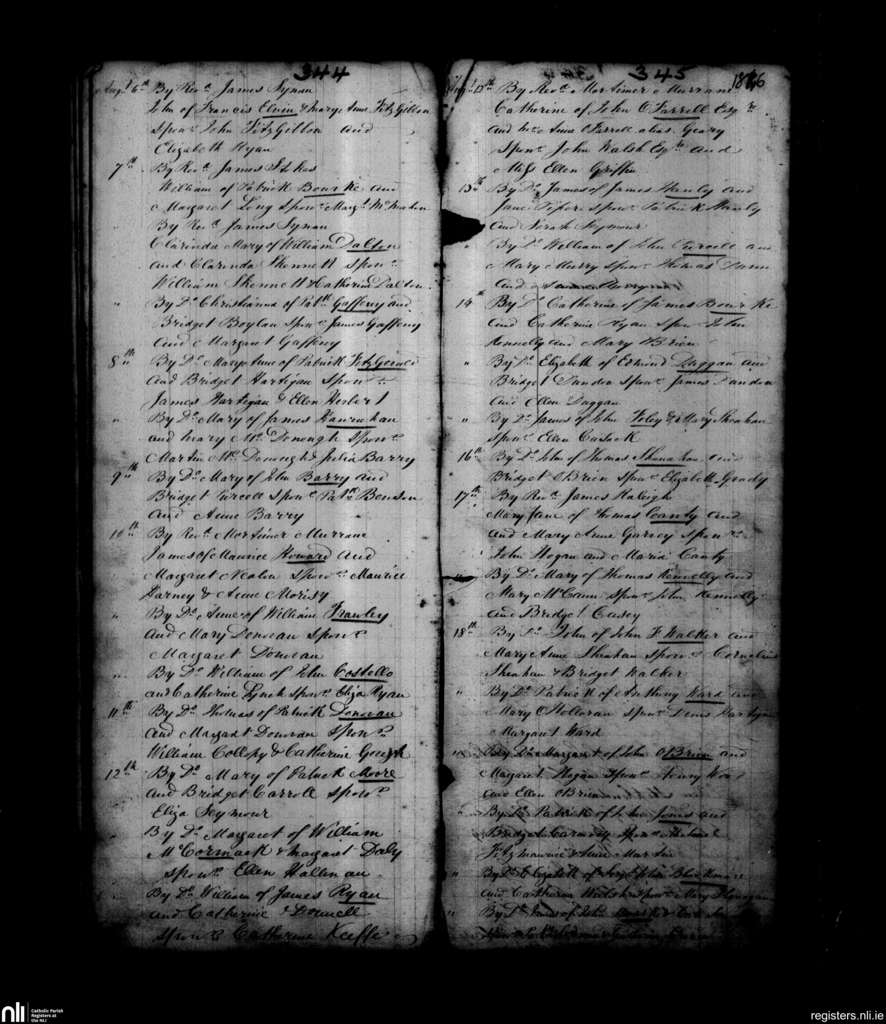 344
Augt 6th By Revd James Synan
John of Francis Elvin & Mary Anne FitzGibbon
Sponrs John FitzGibbon and
Elizabeth Ryan
7th By Revd James Stokes
William of Patrick Bourke and
Margaret Long Sponrs Margt McMahon
By Revd James Synan
Clarinda Mary of William Dalton
and Clarinda Skennett Sponrs
William Skennett & Catherine Dalton
" By Do Christianna of Patk Gaffeny and
Bridget Boylan Sponrs James Gaffeny
and Margaret Gaffeny
8th By Do Mary Anne of Patrick FitzGerald
and Bridget Hartigan Sponrs
James Hartigan & Ellen Herbert
" By Do Mary of James Hanrahan
and Mary McDonough Sponrs
Martin McDonough & Julia Barry
9th By Do Mary of John Barry and
Bridget Purcell Sponrs Patk Benson
and Anne Barry
10th By Revd Mortimer Murrane
James of Maurice Howard and
Margaret Nealon Sponrs Maurice
Harney & Anne Morisy
" By Do Anne of William Frawley
and Mary Donovan Sponr
Margaret Donovan
" By Do William of John Costello
and Catherine Lynch Sponr Eliza Ryan
11th By Do Thomas of Patrick Donovan
and Margaret Donovan Sponrs
William Collopy & Catherine
12th By Do Mary of Patrick Moore
and Bridget Carroll Sponr
Eliza Seymour
By Do Margaret of William
McCormack & Margaret Daly
Sponr Ellen Hallinan
" By Do William of James Ryan
and Catherine
Sponr Catherine Keeffe
345 1846
Augt 12th By Revd Mortimer Murrane
Catherine of John O'Farrell Esqre
and Mrs Anne O'Farrell alias Geary
Sponrs John Walsh Esqre and
Miss Ellen Griffin
13th By Do James of James Hanly and
Jane Sponrs Patrick Hanly
and Sarah Seymour
" By Do William of John Purcell and
Mary Murry Sponrs Thomas
and
14th By Do Catherine of James Bourke
and Catherine Ryan Sponrs John
Kennelly and Mary O'Brien
" By Do Elizabeth of Edmond Duggan and
Bridget Dundon Sponrs James Dundon
and Ellen Duggan
" By Do James of John Foley & Mary Sheahan
Sponr Ellen Cusack
16th By Do John of Thomas Shanahan and
Bridget O'Brien Sponr Elizabeth Grady
17th By Revd James Raleigh
Mary Jane of Thomas Canty and
and Mary Anne Garvey Sponrs
John Hogan and Maria Canty
" By Do Mary of Thomas Kennelly and
Mary McCann Sponrs John Kennelly
and Bridget Casey
18th By Do John of John F Walker and
Mary Anne Sheahan Sponrs Cornelius
Sheahan & Bridget Walker
" By Do Patrick of Anthony Ward and
Mary O'Halloran Sponrs Denis Hartigan
Margaret Ward
By Do Margaret of John O'Brien and
Margaret Hogan Sponrs Henry
and Ellen O'Brien
" By Do Patrick of John Jones and
Bridget Sponrs Michael
Fitzmaurice & Anne Martin
" By Do Elizabeth of Joseph
and Catherine Sponr Mary
" By Do of John
nli
Catholic Parish
Registers at
the NLI
registers.nli.ie